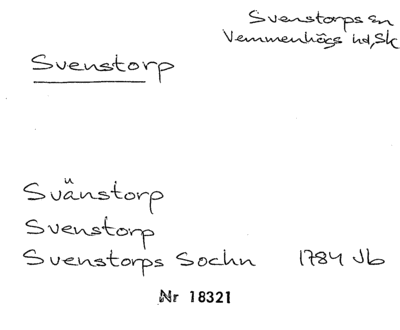 Svenstorps sn
Vemmenhögs hd, Sk
Svenstorp
Svänstorp
Svenstorp
Svenstorps Sochn 1784 Jb
Nr 18321